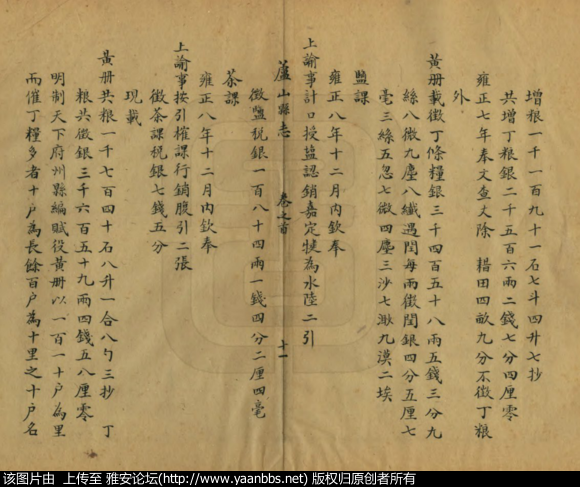 增粮一千一百九十一石七斗四升七抄
共增丁粮銀二千五百六兩二錢七分四厘零
雍正七年奉文查丈除 耤田四畝九分不徵丁粮
外
黃册載徵丁條糧銀三千四百五十八兩五錢三分九
絲八微九塵八纖遇閏每兩徵閏銀四分五厘七
毫三絲五忽七微四塵三沙七渺九漠二埃
鹽課
雍正八年十二月內欽奉
上諭事計口授鹽認銷嘉定犍為水陸二引
蘆山縣志 卷之首 十一
徵鹽税銀一百八十四兩一錢四分二厘四毫
茶課
雍正八年十二月內欽奉
上諭事按引榷課行銷腹引二張
徵茶課税銀七錢五分
現載
黃册共粮一千七百四十石八升一合八勺三抄 丁
粮共徵銀三千六百五十九兩四錢五八厘零
明制天下府州縣編賦役黃册以一百一十户為里
而催丁糧多者十户為長餘百户為十里之十户名
该图片由 上传至 雅安论坛(http://www.yaanbbs.net) 版权归原创者所有